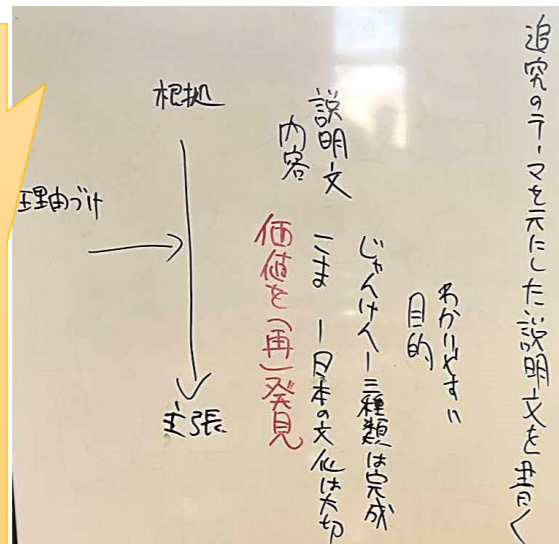 追究のテーマを元にした説明文を書く
わかりやすい
目的
じゃんけんー三種類は完成
こま ー日本の文化は大切
説明文
内容
価値を(再)発見
根拠
理由づけ
主張